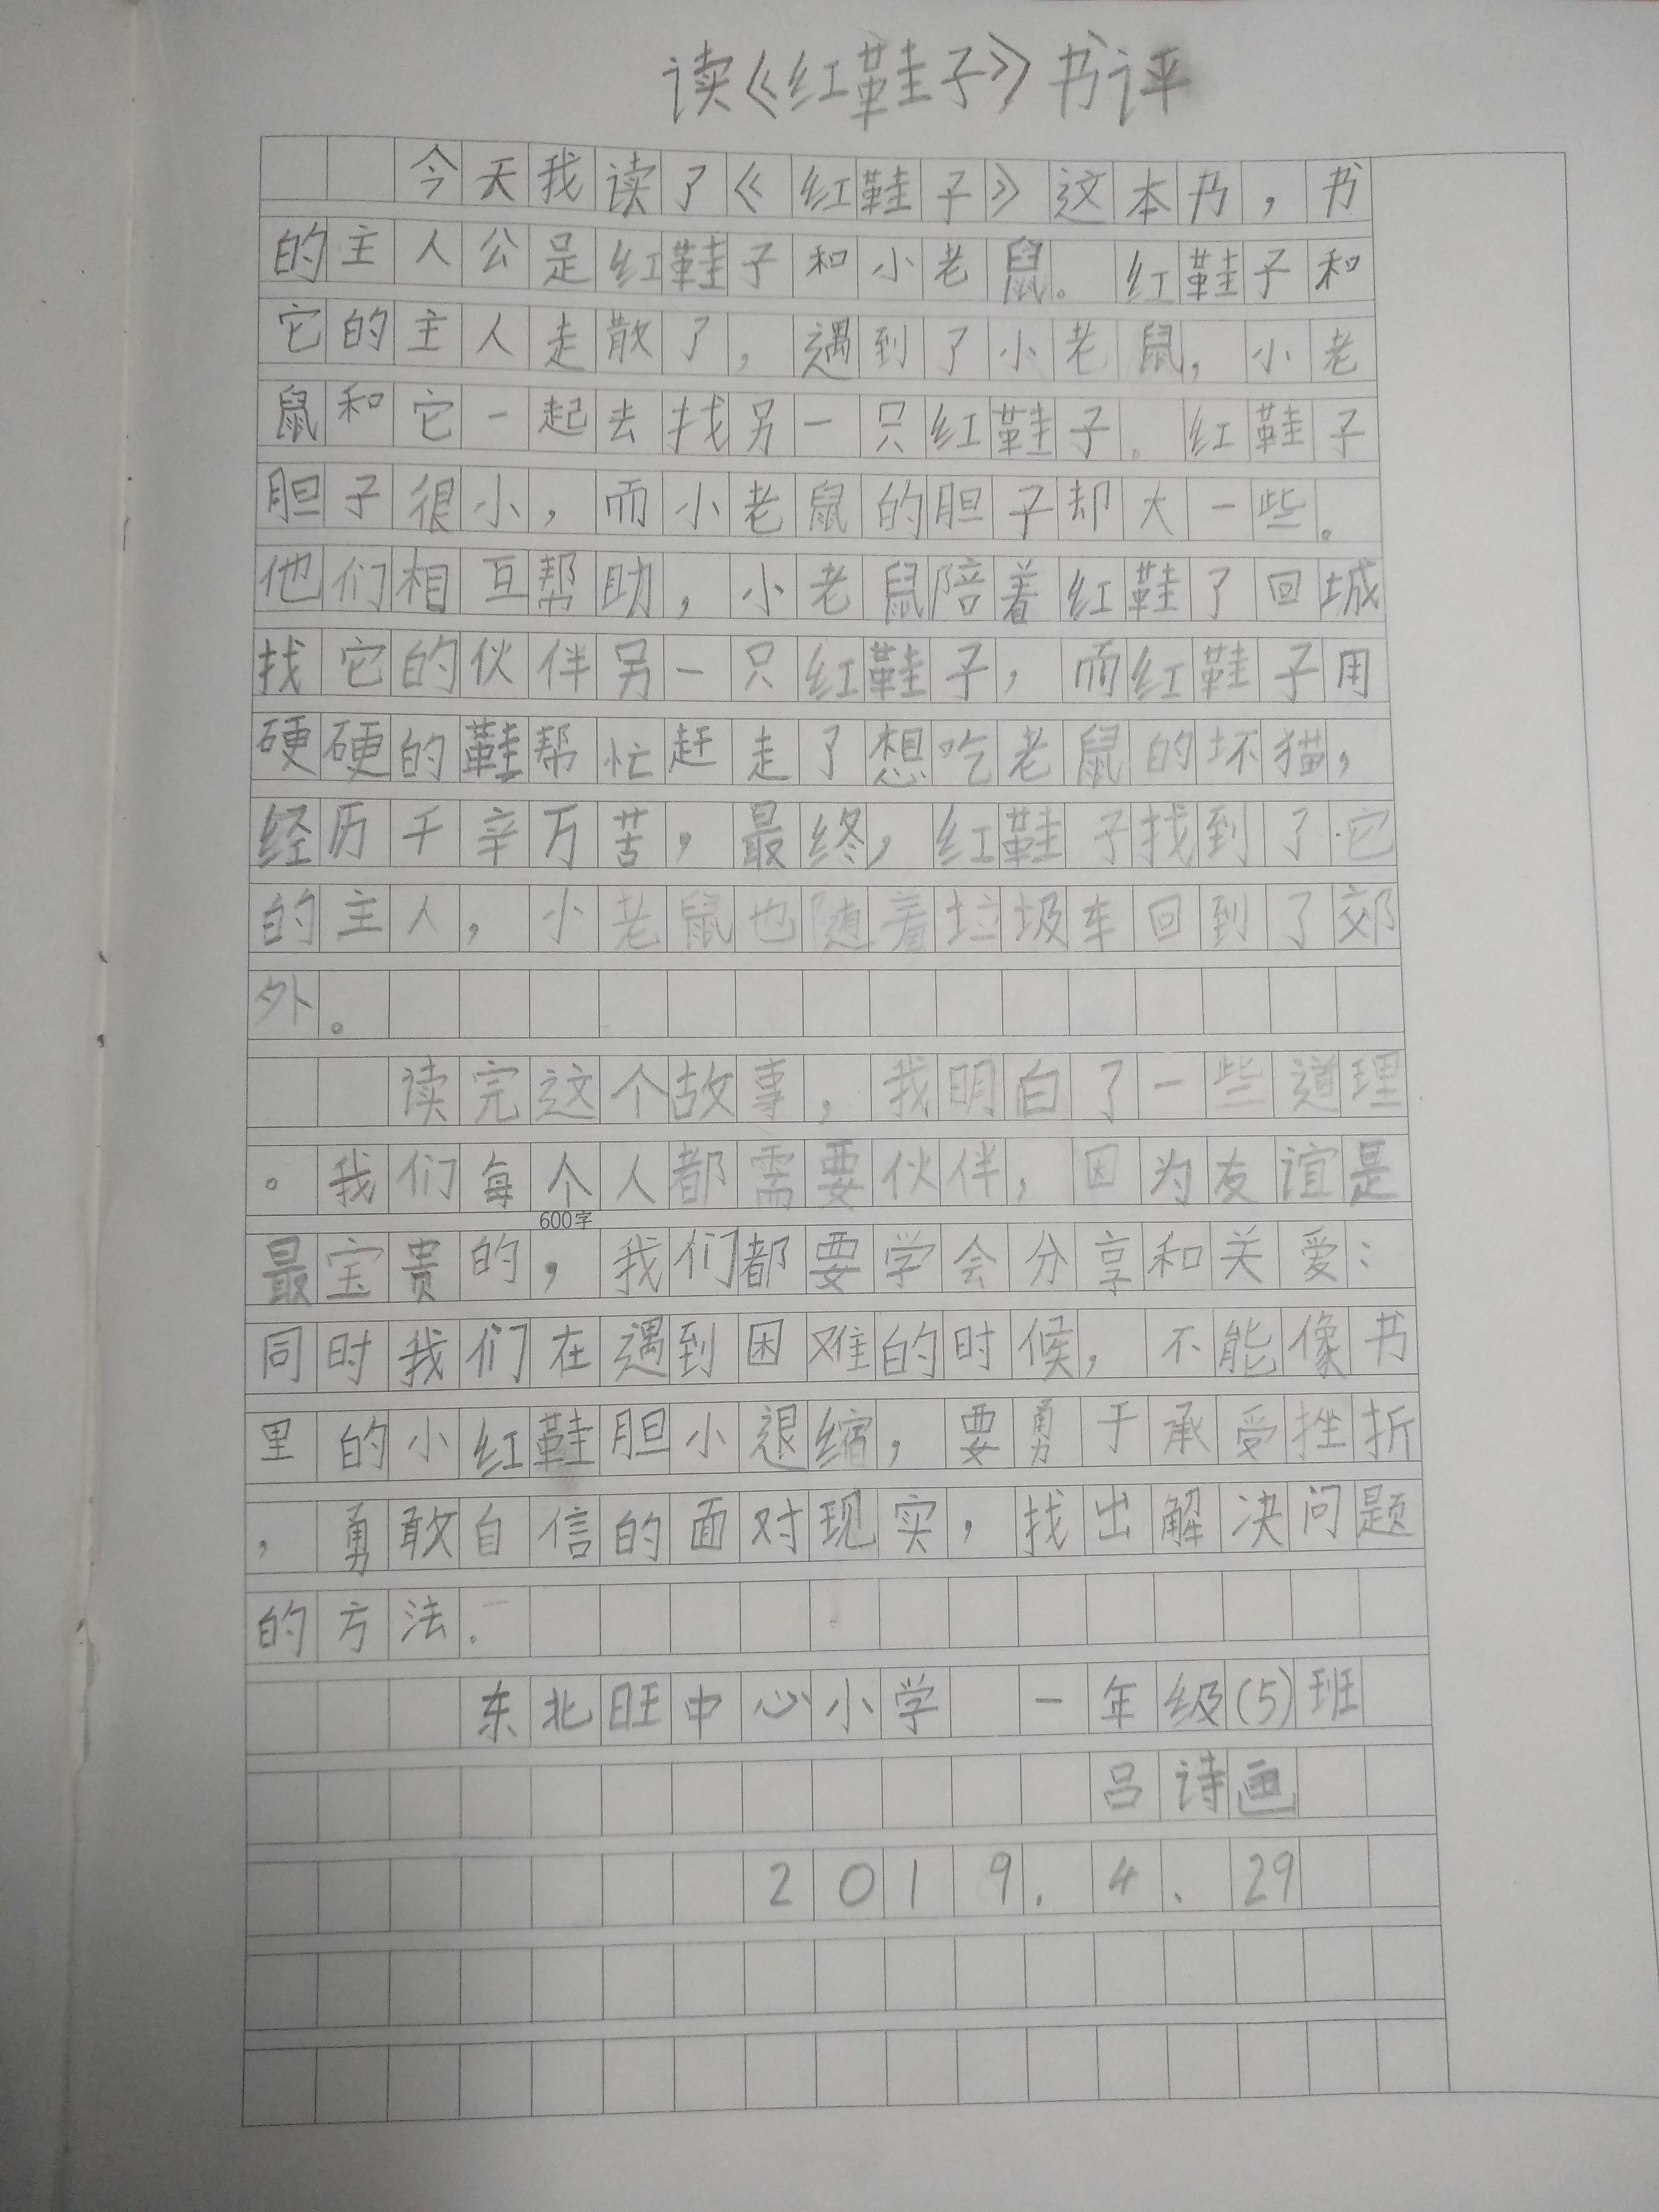 读《红鞋子》书评
今天我读了《红鞋子》这本书，书
的主人公是红鞋子和小老鼠。红鞋子和
它的主人走散了，遇到了小老鼠，小老
鼠和它一起去找另一只红鞋子。红鞋子
胆子很小，而小老鼠的胆子却大一些。
他们相互帮助，小老鼠陪着红鞋了回城
找它的伙伴另一只红鞋子，而红鞋子用
硬硬的鞋帮忙赶走了想吃老鼠的坏猫，
经历千辛万苦，最终，红鞋子找到了它
的主人，小老鼠也随着垃圾车回到了郊
外。
读完这个故事，我明白了一些道理
。我们每个人都需要伙伴，因为友谊是
600字
最宝贵的，我们都要学会分享和关爱；
同时我们在遇到困难的时候，不能像书
里的小红鞋胆小退缩，要勇于承受挫折
，勇敢自信的面对现实，找出解决问题
的方法。
东北旺中心小学 一年级(5)班
吕诗画
2019.4.29